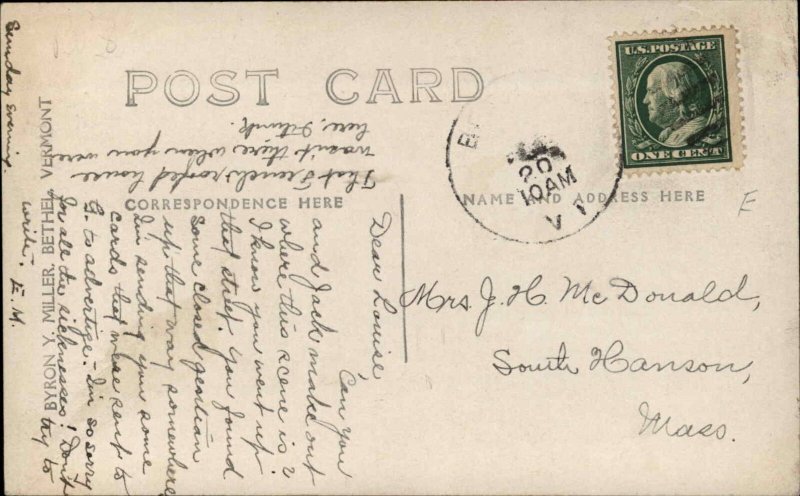 POST CARD
CORRESPONDENCE HERE
NAME AND ADDRESS HERE
BYRON Y MILLER, BETHEL VERMONT
U.S. POSTAGE
ONE CENT
20
10AM
Mrs. J. H. McDonald,
South Hanson,
Mass.
E
Sunday Evening.
Dear Louise,
Can you
and Jack make out
where this scene is?
I know you went up
that street. You found
some closed gentian
up that way somewhere
I'm sending you some
cards that were sent to
G. to advertise. I'm so sorry
for all the sicknesses! Don't
try to
write. E. M.
That French roofed house
wasn't there when you were
here, I think.